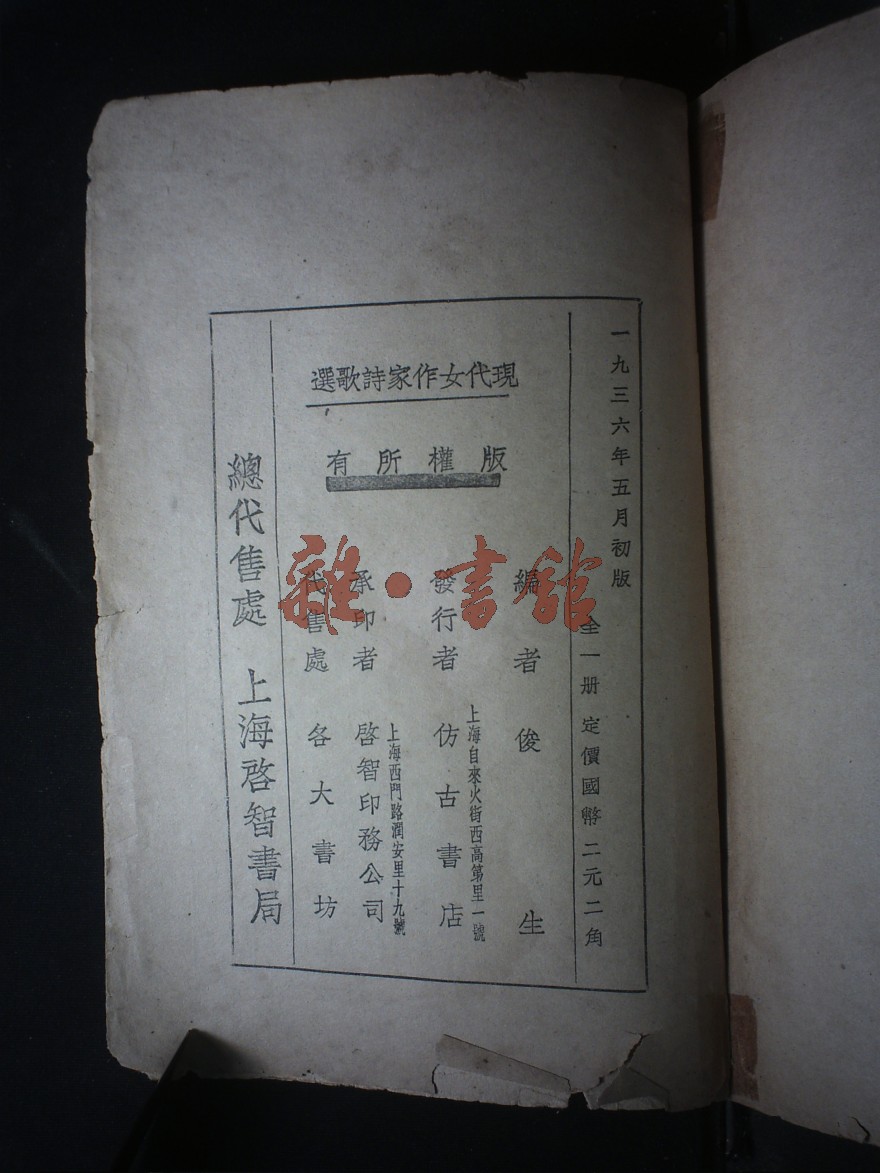 一九三六年五月初版
全一册 定價國幣二元二角
現代女作家詩歌選
版權所有
編者 俊生
上海自來火街西高第里一號
發行者 仿古書店
上海西門路潤安里十九號
承印者 啓智印務公司
代售處 各大書坊
總代售處 上海啓智書局
雜·書館